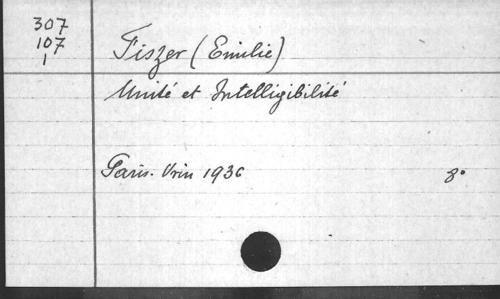 307
107
1
Fiszer (Emilie)
Unité et Intelligibilité
Paris. Vrin 1936
8°